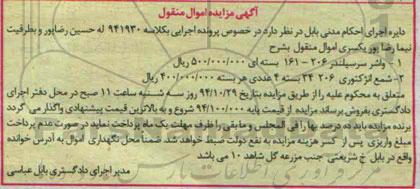 آگهی مزایده اموال منقول
دایره اجرای احکام مدنی بابل در نظر دارد در خصوص پرونده اجرایی بکلاسه ۹۴۱۹۳۰ له حسین رضاپور و بطرفیت
نیما رضا پور یکسری اموال منقول بشرح
۱ - واشر سرسیلندر ۲۰۶ - ۱۶۱ بسته ای ۵۰۰/۰۰۰/۰۰۰ ریال
۲ - شمع انژکتوری ۲۰۶ ۳۴ بسته ۴ عددی هر بسته ۴۰۰/۰۰۰/۰۰۰ ریال
متعلق به محکوم علیه را از طریق مزایده بتاریخ ۹۴/۱۰/۲۹ روز سه شنبه ساعت ۱۱ صبح در محل دفتر اجرای
دادگستری بفروش برساند مزایده از قیمت پایه ۹۴/۱۰۰/۰۰۰ شروع و به بالاترین قیمت پیشنهادی واگذار می گردد
برنده مزایده باید ده درصد بها را فی المجلس و مابقی را ظرف مهلت یک ماه پرداخت نماید در صورت عدم پرداخت
مبلغ واریزی پس از کسر هزینه مزایده به نفع دولت ضبط خواهد شد. ضمنا محل نگهداری اموال به آدرس خوانده
واقع در بابل خ شریعتی جنب مزرعه گل شاهد ۱۰ می باشد
مدیر اجرای دادگستری بابل عباسی